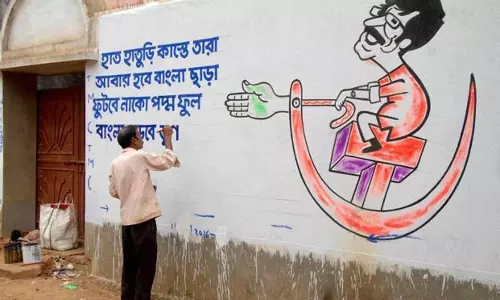 হাত হাতুড়ি কাস্তে তারা
আবার হবে বাংলা ছাড়া
ফুটবে নাকো পদ্ম ফুল
তৃণ
T
M
C
T
M
(
2016